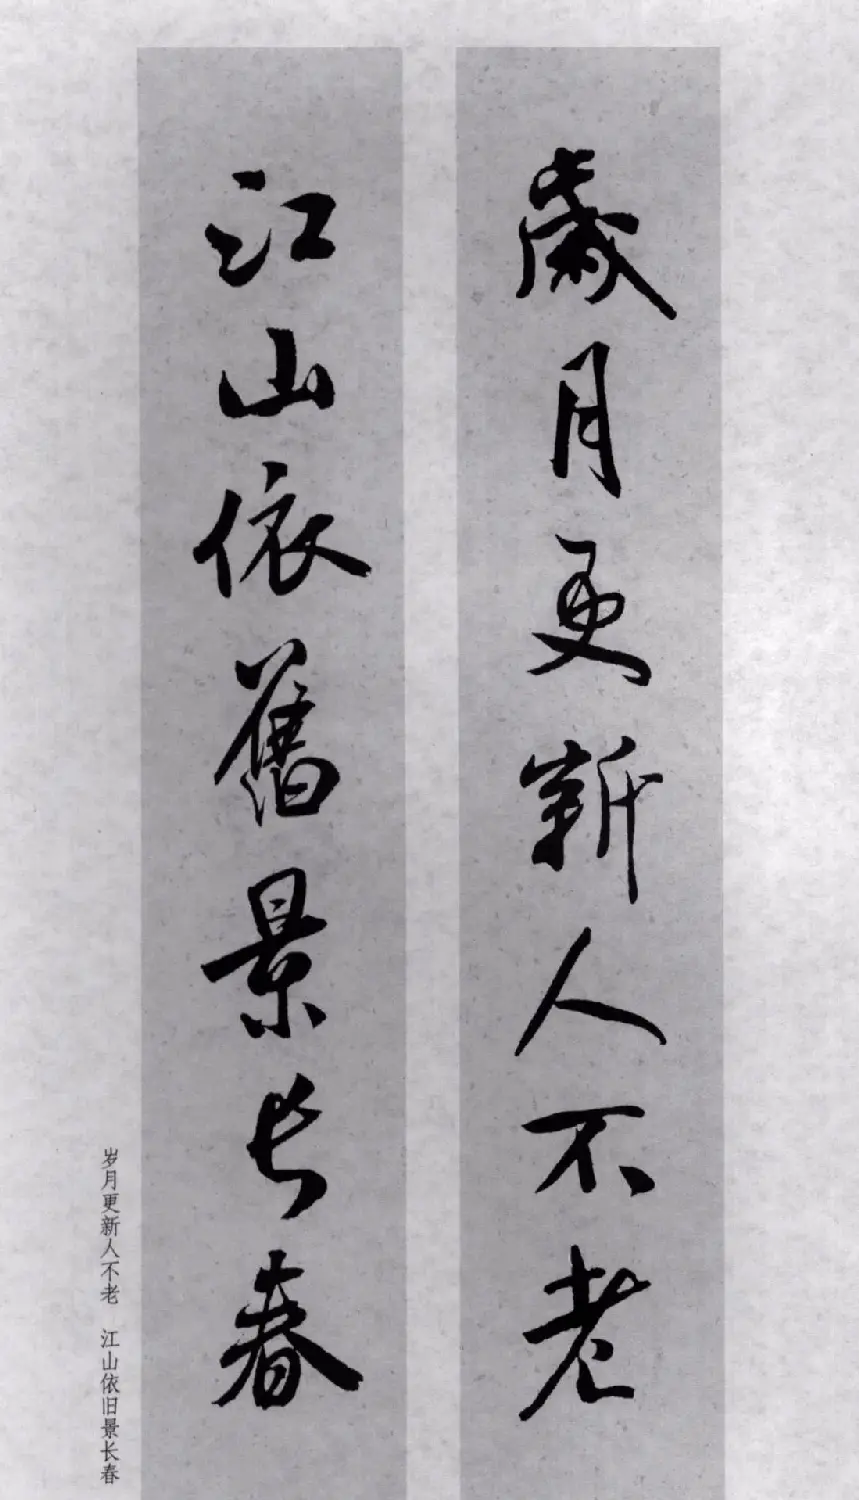 歲月更新人不老
江山依舊景長春
岁月更新人不老 江山依旧景长春